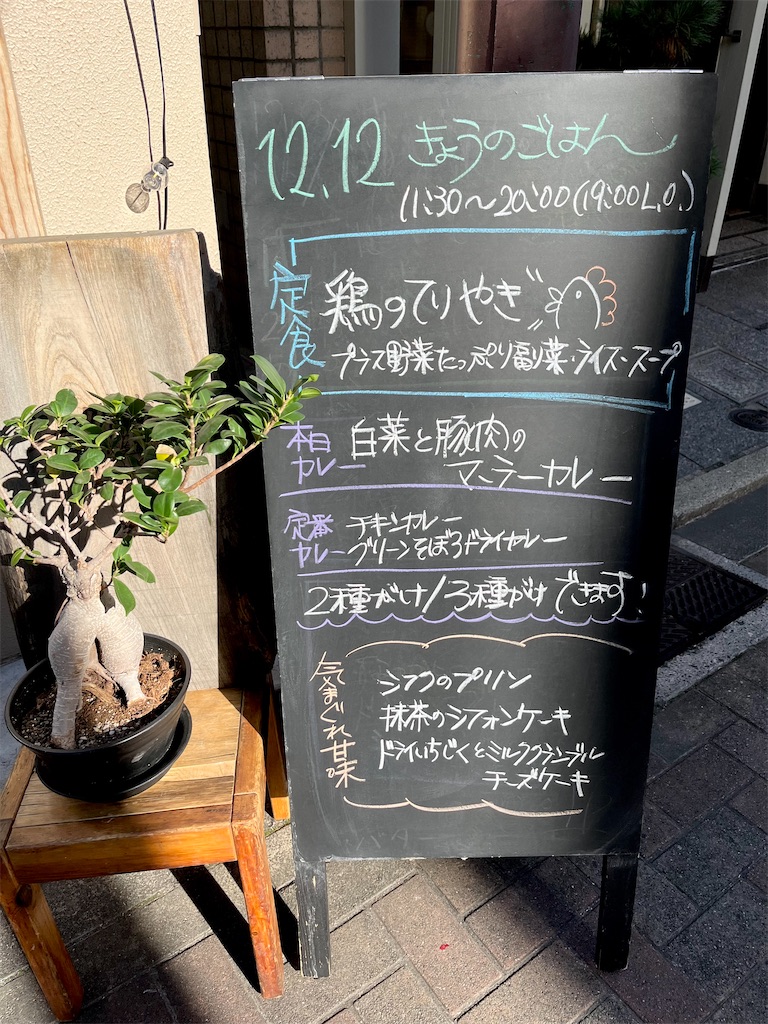 12.12 きょうのごはん
(11:30〜20:00(19:00 L.O.)
定食
鶏のてりやき
プラス野菜たっぷり副菜・ライス・スープ
本日カレー
白菜と豚肉の
マーラーカレー
定番カレー
チキンカレー
グリーンそぼろドライカレー
2種がけ/3種がけできます!
気まぐれ甘味
シフクのプリン
抹茶のシフォンケーキ
ドライいちじくとミルククランブル
チーズケーキ